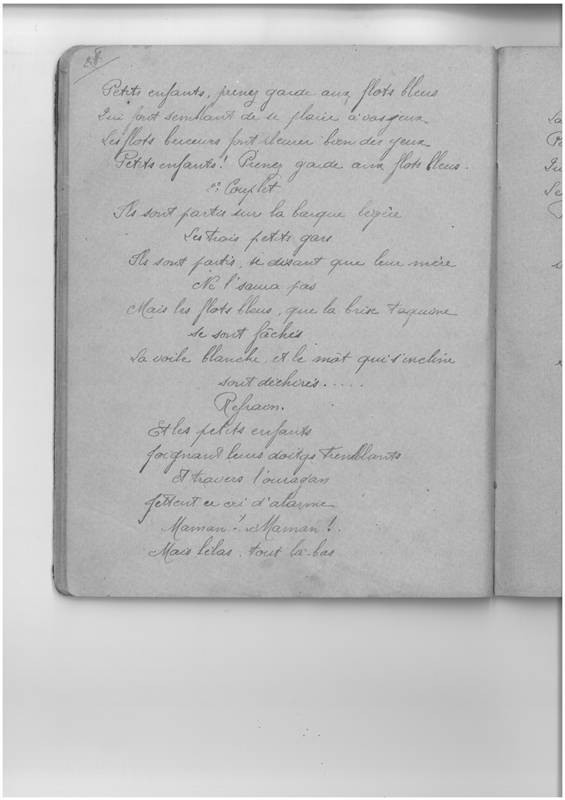 Petits enfants, prenez garde aux flots bleus
Qui font semblant de se plaire à vos jeux
Les flots berceurs font pleurer bien des yeux
Petits enfants! Prenez garde aux flots bleus.
2e Couplet
Ils sont partis sur la barque légère
Les trois petits gars
Ils sont partis, se disant que leur mère
Ne l'saura pas
Mais les flots bleus, que la brise taquine
se sont fâchés
La voile blanche et le mât qui s'incline
sont déchirés.....
Refrain.
Et les petits enfants
Joignant leurs doitgs tremblants
A travers l'ouragan
Jettent ce cri d'alarme
Maman! Maman!
Mais hélas, tout là-bas
La
Qu
Le